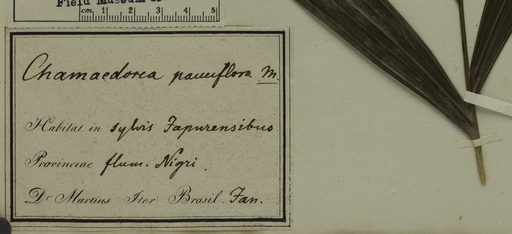 Field Museum
cm. 1 2 3 4 5
Chamaedorea pauciflora M.
Habitat in sylvis Japurensibus
Provinciae flum. Nigri.
Dr Martius Iter Brasil. Jan.